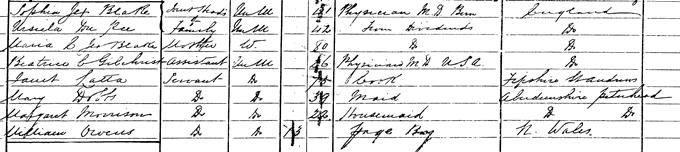 Sophia Jex Blake Head Un M 41 Physician M D Bern England
Ursula Du Pre Family Un M 42 From Dividends Do
Maria E Jex Blake Mother W. 80 Do Do
Beatrice C Gilchrist Assistant Un M 26 Physician M D USA Do
Janet Latta Servant Do Cook Fifeshire St Andrews
Mary Dobbs D Do 39 Maid Aberdeenshire Peterhead
Margaret Morrison D Do 22 Housemaid D Do
William Owens D Do 13 Page Boy N. Wales